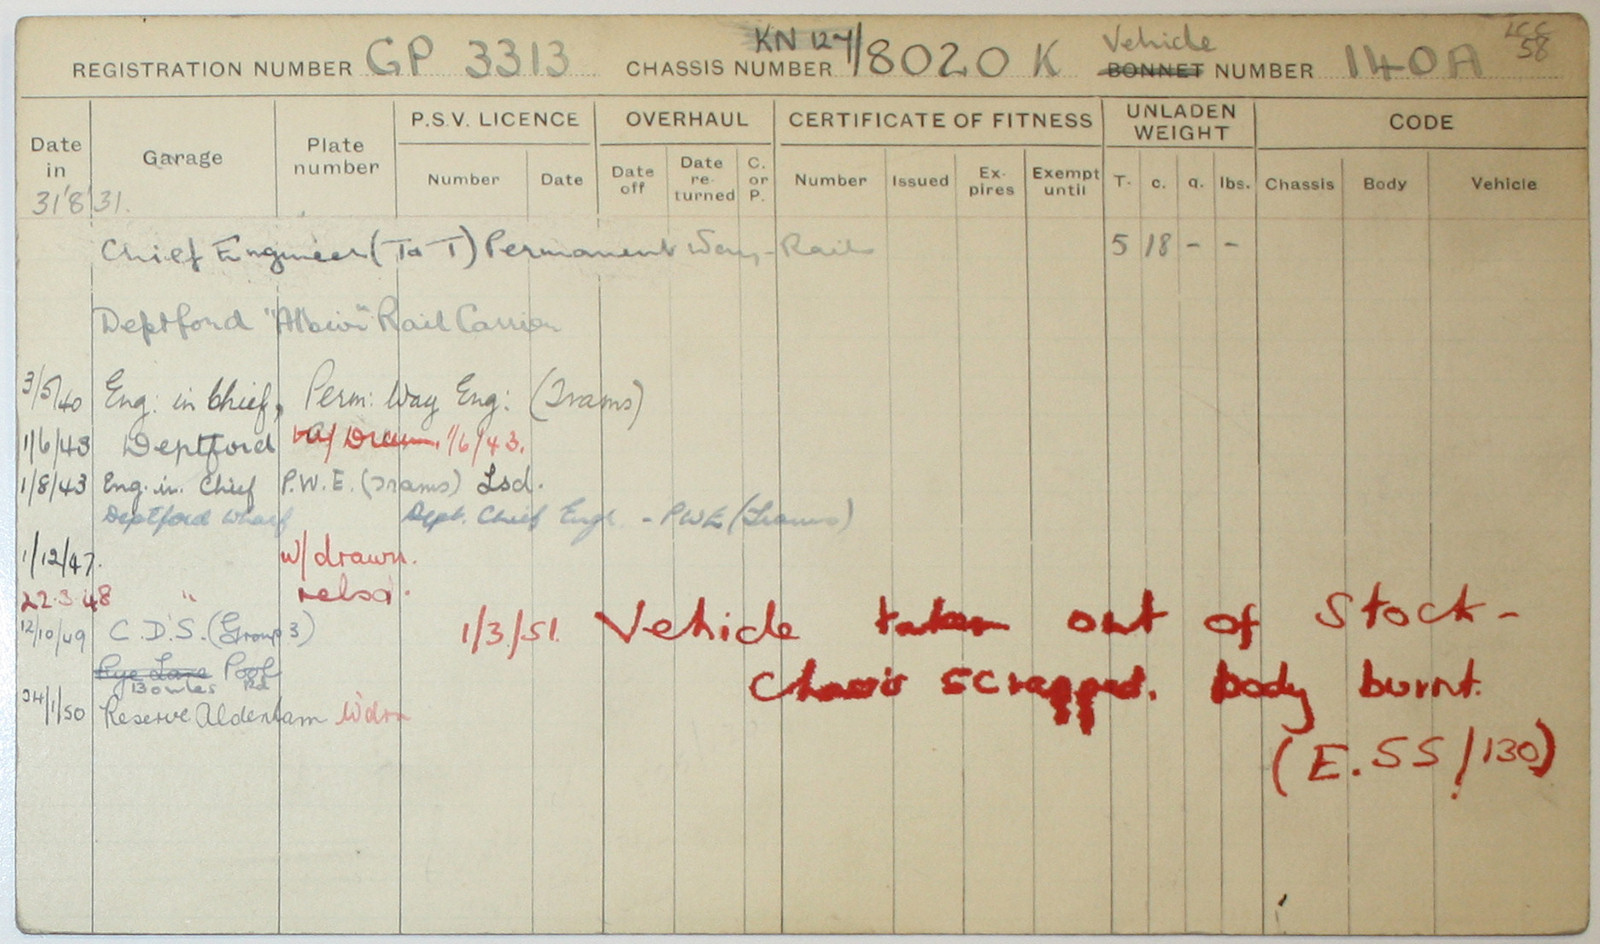 LCC
KN 127/8020 K Vehicle 58
REGISTRATION NUMBER GP 3313 CHASSIS NUMBER BONNET NUMBER 140A
P.S.V. LICENCE OVERHAUL CERTIFICATE OF FITNESS UNLADEN WEIGHT CODE
Date in Garage Plate number Number Date Date off Date re-turned C. or P. Number Issued Ex-pires Exempt until T. c. q. lbs. Chassis Body Vehicle
31.8.31.
Chief Engineer (T o T) Permanent Way - Rail 5 18 - -
Deptford "Albion" Rail Carrier
3/5/40 Eng: in Chief, Perm: Way Eng: (Trams)
1/6/43 Deptford w/ Drawn 1/6/43.
1/8/43 Eng. in Chief P.W.E. (Trams) Lsd.
Deptford Wharf Dept. Chief Engr - PWE (Trams)
1/12/47. w/drawn.
22.3.48 " relsd.
12/10/49 C.D.S. (Group 3) 1/3/51. Vehicle taken out of Stock -
Rye Lane Pool
Bowles Rd Chassis scrapped. body burnt.
24/1/50 Reserve Aldenham W'drn
(E.55/130)